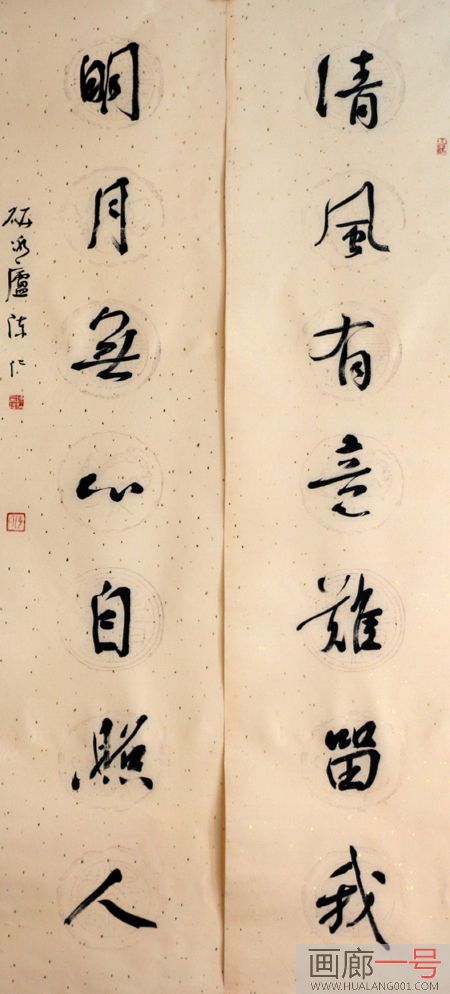 清風有意難留我
明月無心自照人
廬陳仁
画廊一号
WWW.HUALANG001.COM